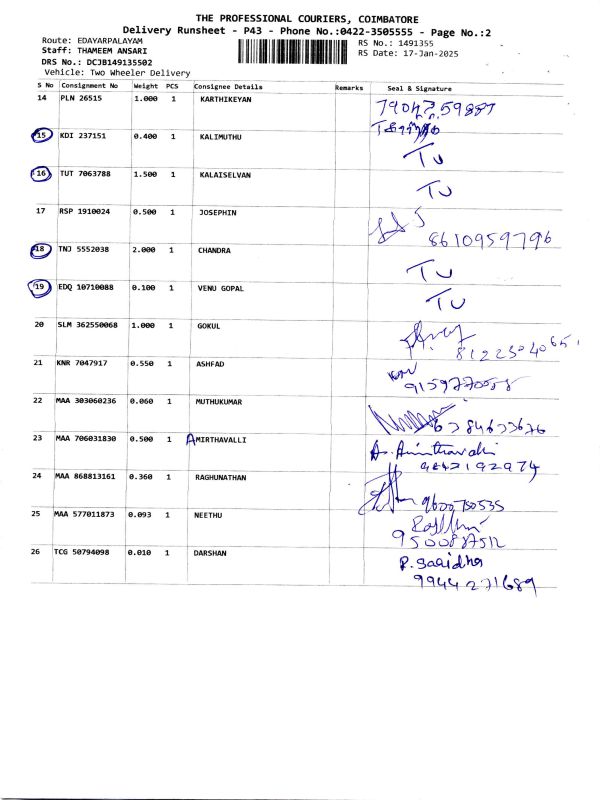 THE PROFESSIONAL COURIERS, COIMBATORE
Delivery Runsheet - P43 - Phone No.:0422-3505555 - Page No.:2
Route: EDAYARPALAYAM
RS No.: 1491355
Staff: THAMEEM ANSARI
RS Date: 17-Jan-2025
DRS No.: DCJB149135502
Vehicle: Two Wheeler Delivery
S No Consignment No Weight PCS Consignee Details Remarks Seal & Signature
14 PLN 26515 1.000 1 KARTHIKEYAN
15 KDI 237151 0.400 1 KALIMUTHU TU
16 TUT 7063788 1.500 1 KALAISELVAN TU
17 RSP 1910024 0.500 1 JOSEPHIN
8610959796
18 TNJ 5552038 2.000 1 CHANDRA TU
19 EDQ 10710088 0.100 1 VENU GOPAL TU
20 SLM 362550068 1.000 1 GOKUL
21 KNR 7047917 0.550 1 ASHFAD
22 MAA 303060236 0.060 1 MUTHUKUMAR
23 MAA 706031830 0.500 1 AMIRTHAVALLI A. Amirthavalli
9842192974
24 MAA 868813161 0.360 1 RAGHUNATHAN
9600750535
25 MAA 577011873 0.093 1 NEETHU
9500887512
26 TCG 50794098 0.010 1 DARSHAN
9944271689